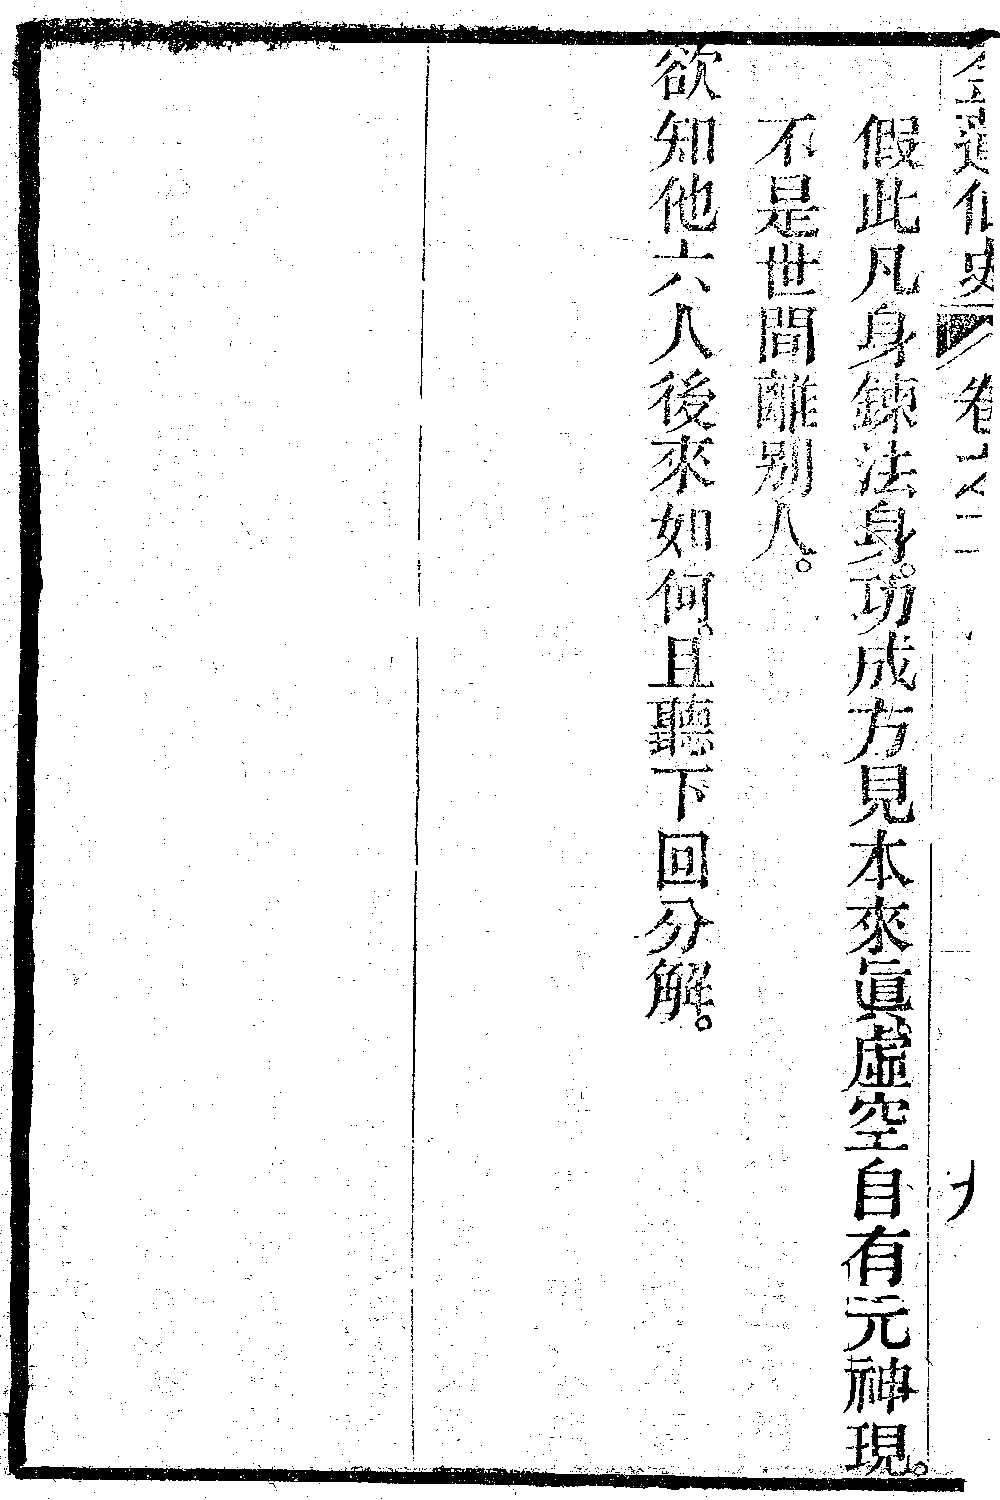 假此凡身鍊法身。功成方見本來眞。虛空自有元神現。
不是世間離别人。
欲知他六人後來如何。且聽下回分解。